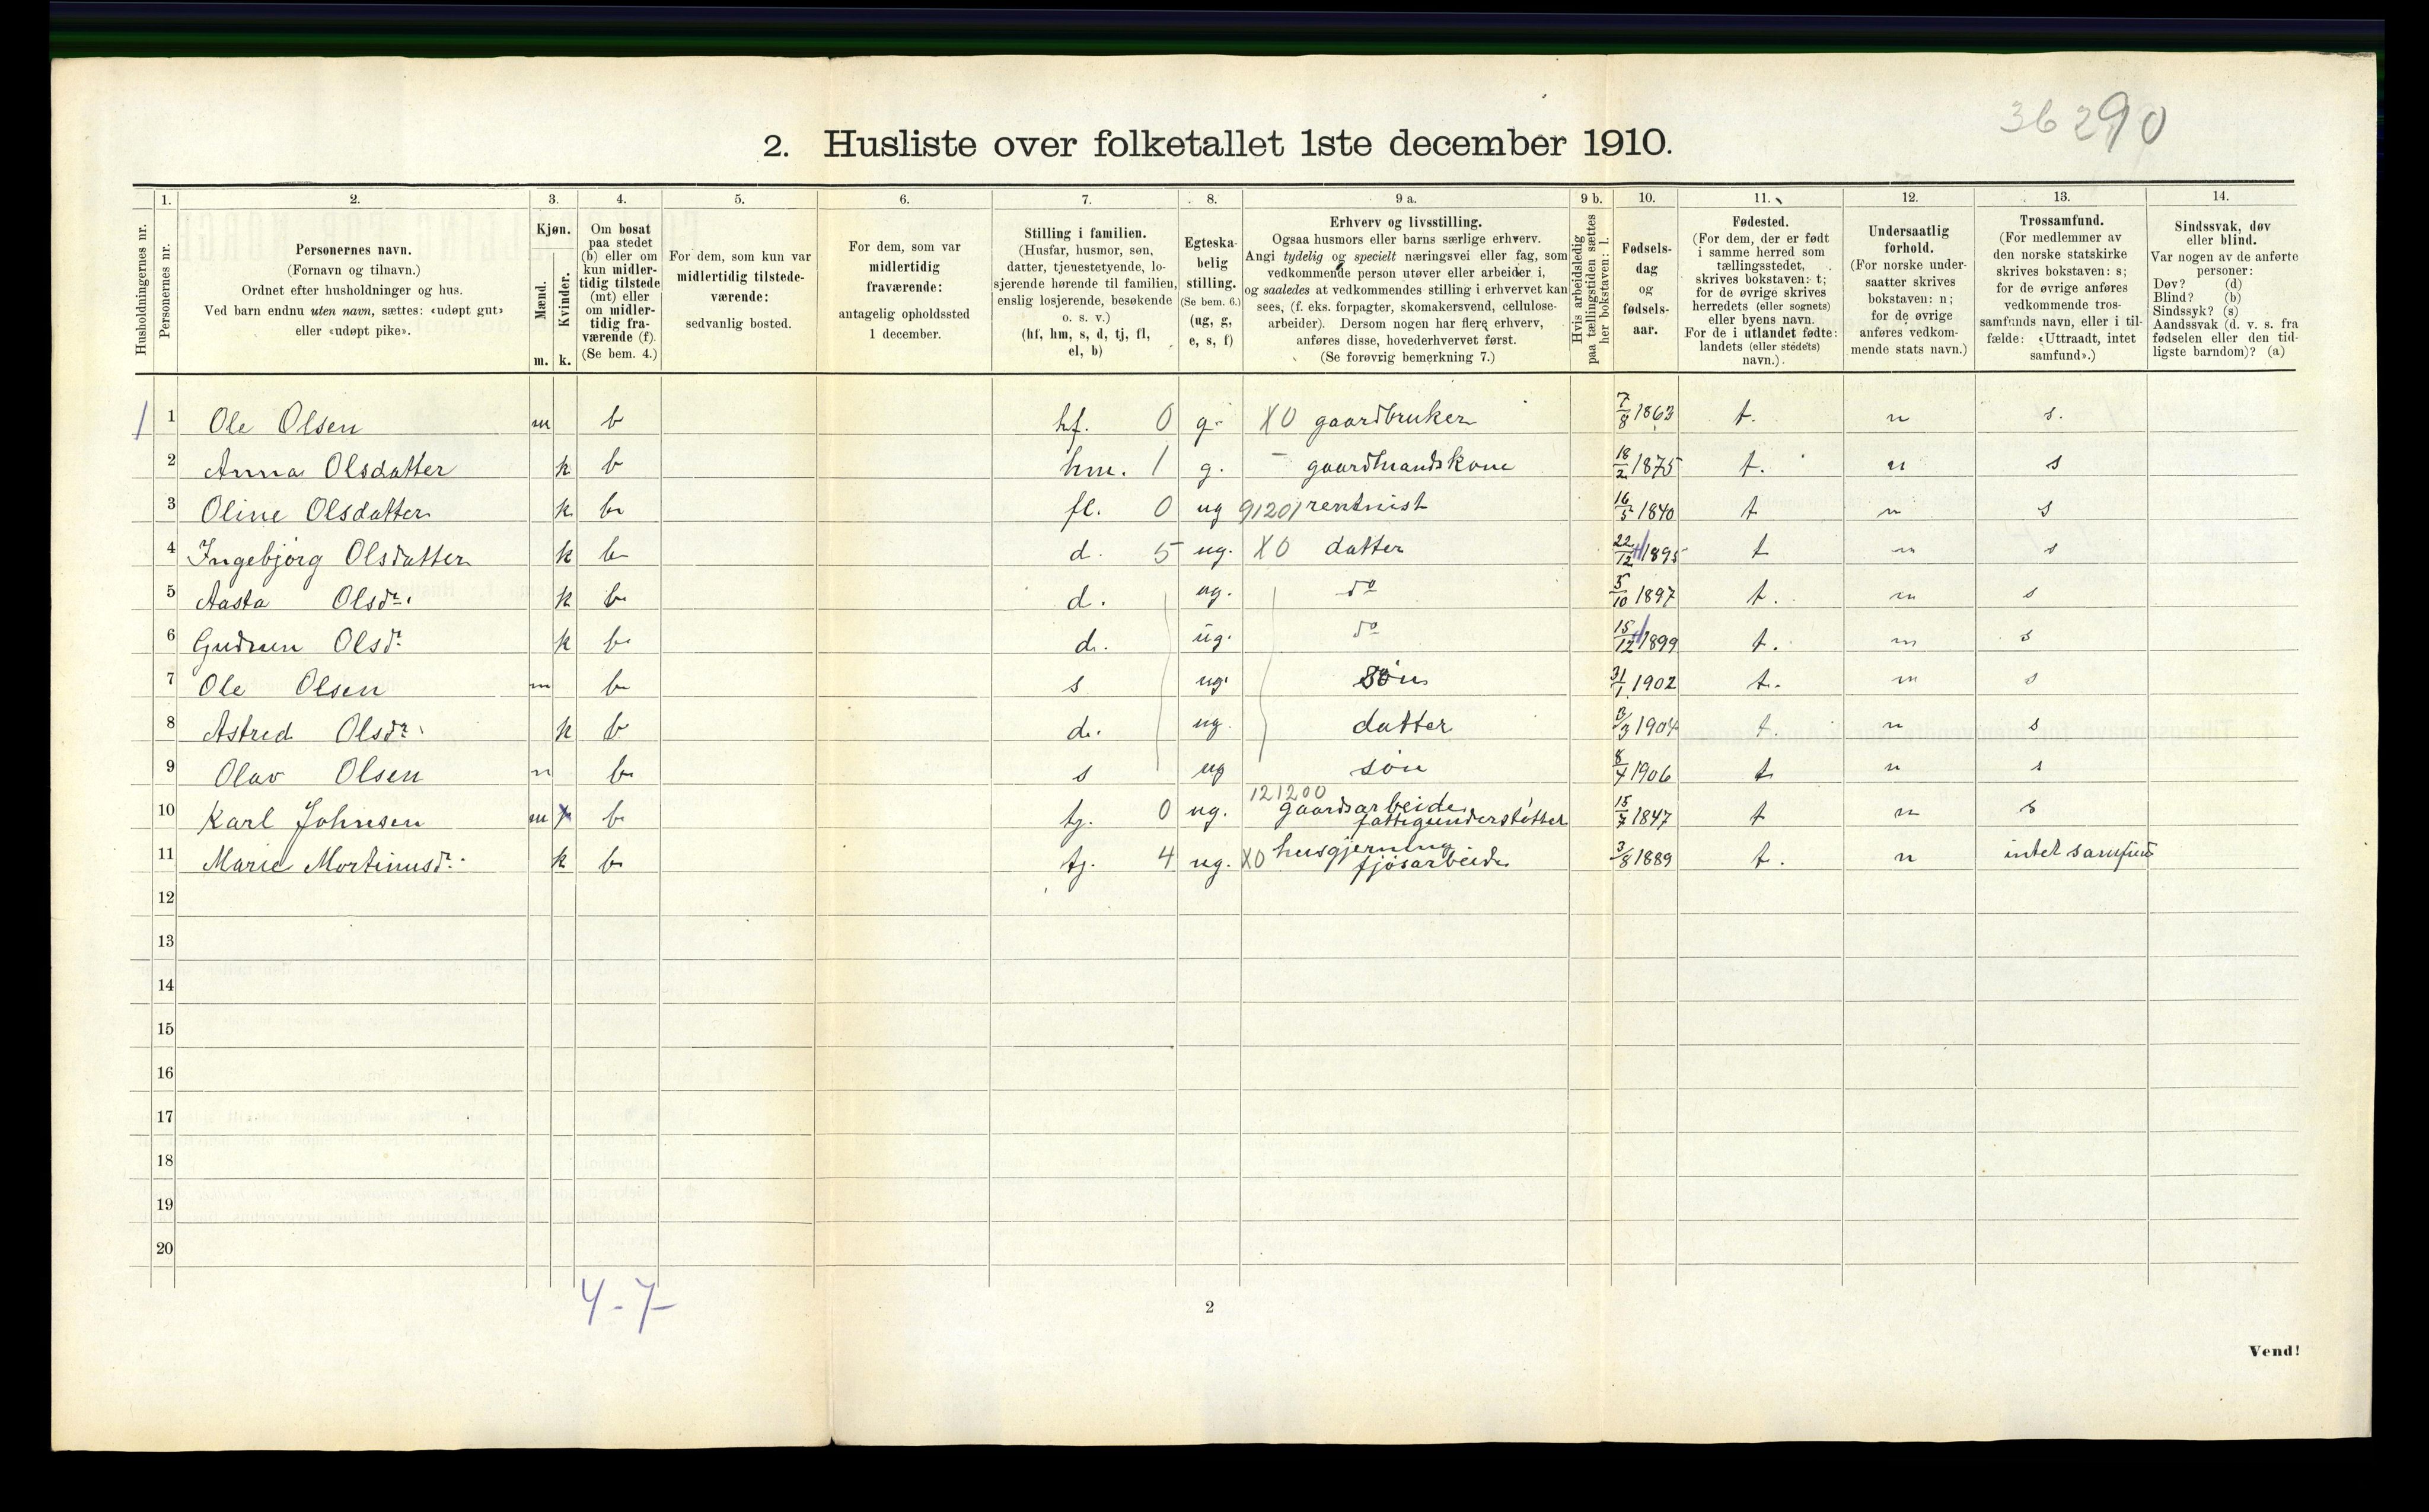 36 290
2. Husliste over folketallet 1ste december 1910.
Husholdningernes nr.
1. Personernes nr.
2. Personernes navn.
(Fornavn og tilnavn.)
Ordnet efter husholdninger og hus.
Ved barn endnu uten navn, sættes: «udøpt gut»
eller «udøpt pike».
3. Kjøn.
Mænd. m.
Kvinder. k.
4. Om bosat
paa stedet
(b) eller om
kun midler-
tidig tilstede
(mt) eller
om midler-
tidig fra-
værende (f).
(Se bem. 4.)
5. For dem, som kun var
midlertidig tilstede-
værende:
sedvanlig bosted.
6. For dem, som var
midlertidig
fraværende:
antagelig opholdssted
1 december.
7. Stilling i familien.
(Husfar, husmor, søn,
datter, tjenestetyende, lo-
sjerende hørende til familien,
enslig losjerende, besøkende
o. s. v.)
(hf, hm, s, d, tj, fl,
el, b)
8. Egteska-
belig
stilling.
(Se bem. 6.)
(ug, g,
e, s, f)
9 a. Erhverv og livsstilling.
Ogsaa husmors eller barns særlige erhverv.
Angi tydelig og specielt næringsvei eller fag, som
vedkommende person utøver eller arbeider i,
og saaledes at vedkommendes stilling i erhvervet kan
sees, (f. eks. forpagter, skomakersvend, cellulose-
arbeider). Dersom nogen har flere erhverv,
anføres disse, hovederhvervet først.
(Se forøvrig bemerkning 7.)
9 b. Hvis arbeidsledig
paa tællingstiden sættes
her bokstaven: l.
10. Fødsels-
dag
og
fødsels-
aar.
11. Fødested.
(For dem, der er født
i samme herred som
tællingsstedet,
skrives bokstaven: t;
for de øvrige skrives
herredets (eller sognets)
eller byens navn.
For de i utlandet fødte:
landets (eller stedets)
navn.)
12. Undersaatlig
forhold.
(For norske under-
saatter skrives
bokstaven: n;
for de øvrige
anføres vedkom-
mende stats navn.)
13. Trossamfund.
(For medlemmer av
den norske statskirke
skrives bokstaven: s;
for de øvrige anføres
vedkommende tros-
samfunds navn, eller i til-
fælde: «Uttraadt, intet
samfund».)
14. Sindssvak, døv
eller blind.
Var nogen av de anførte
personer:
Døv? (d)
Blind? (b)
Sindssyk? (s)
Aandssvak (d. v. s. fra
fødselen eller den tid-
ligste barndom)? (a)
1 1 Ole Olsen m b hf. 0 g. X0 gaardbruker 7/8 1863 t. n s.
2 Anna Olsdatter k b hm. 1 g. - gaardmandskone 18/2 1875 t. n s
3 Oline Olsdatter k b fl. 0 ug 91201 rentnist 16/5 1840 t n s
4 Ingebjørg Olsdatter k b d. 5 ug. X0 datter 22/12 1895 t n s
5 Aasta Olsdr. k b d. ug. do 5/10 1897 t. n s
6 Gudrun Olsdr k b d. ug. do 15/12 1899 t. n s
7 Ole Olsen m b s ug. søn 31/1 1902 t. n s
8 Astrid Olsdr. k b d. ug. datter 3/3 1904 t. n s
9 Olav Olsen m b s ug søn 8/4 1906 t n s
10 Karl Johnsen m b tj. 0 ug. 121200 gaardsarbeide
fattigunderstøttet 15/7 1847 t n s
11 Marie Martinusdr. k b tj. 4 ug. X0 husgjerning
fjøsarbeide 3/8 1889 t. n intet samfund
12
13
14
15
16
17
18
19
20
4-7
2
Vend!